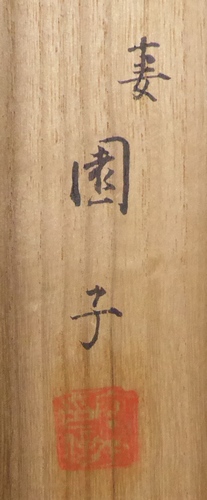 妻
園子